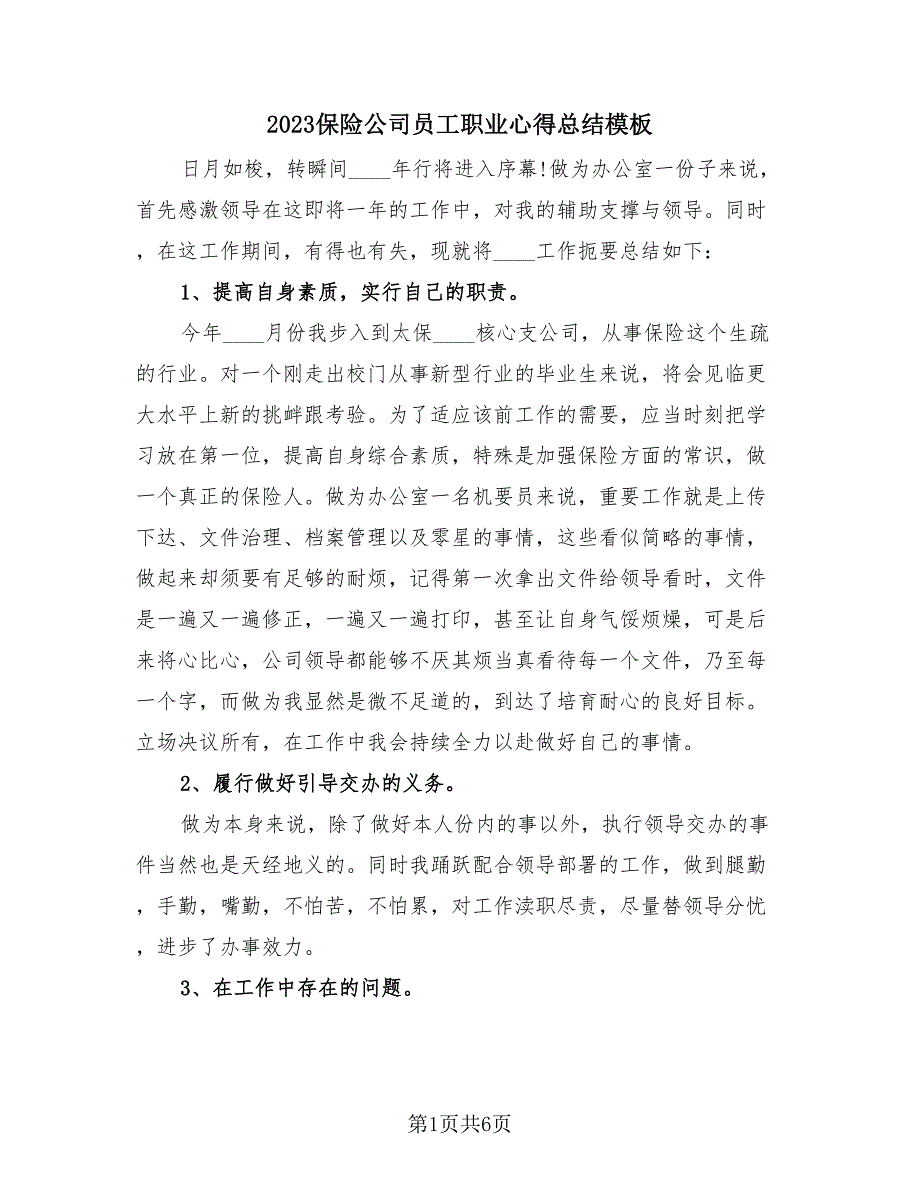 2023保险公司员工职业心得总结模板
日月如梭，转瞬间____年行将进入序幕!做为办公室一份子来说，
首先感激领导在这即将一年的工作中，对我的辅助支撑与领导。同时
，在这工作期间，有得也有失，现就将____工作扼要总结如下：
1、提高自身素质，实行自己的职责。
今年____月份我步入到太保____核心支公司，从事保险这个生疏
的行业。对一个刚走出校门从事新型行业的毕业生来说，将会见临更
大水平上新的挑衅跟考验。为了适应该前工作的需要，应当时刻把学
习放在第一位，提高自身综合素质，特殊是加强保险方面的常识，做
一个真正的保险人。做为办公室一名机要员来说，重要工作就是上传
下达、文件治理、档案管理以及零星的事情，这些看似简略的事情，
做起来却须要有足够的耐烦，记得第一次拿出文件给领导看时，文件
是一遍又一遍修正，一遍又一遍打印，甚至让自身气馁烦燥，可是后
来将心比心，公司领导都能够不厌其烦当真看待每一个文件，乃至每
一个字，而做为我显然是微不足道的，到达了培育耐心的良好目标。
立场决议所有，在工作中我会持续全力以赴做好自己的事情。
2、履行做好引导交办的义务。
做为本身来说，除了做好本人份内的事以外，执行领导交办的事
件当然也是天经地义的。同时我踊跃配合领导部署的工作，做到腿勤
，手勤，嘴勤，不怕苦，不怕累，对工作渎职尽责，尽量替领导分忧
，进步了办事效力。
3、在工作中存在的问题。
第1页共6页